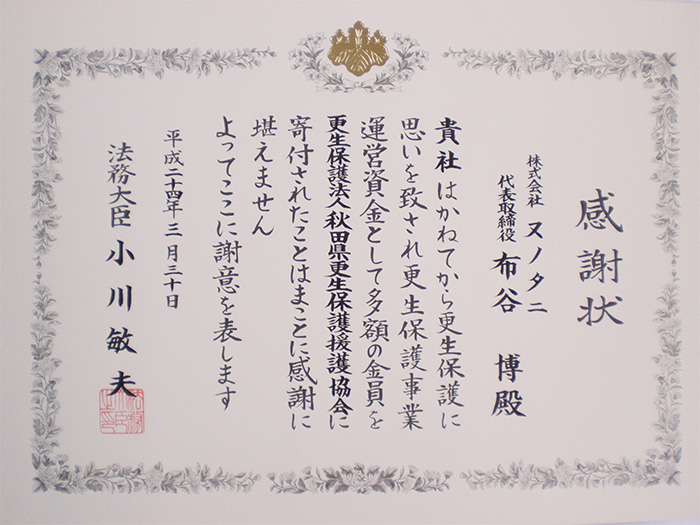 感謝状
株式会社 ヌノタニ
代表取締役 布谷 博殿
貴社はかねてから更生保護に
思いを致され更生保護事業
運営資金として多額の金員を
更生保護法人秋田県更生保護援護協会に
寄付されたことはまことに感謝に
堪えません
よってここに謝意を表します
平成二十四年三月三十日
法務大臣 小川敏夫
法務大臣之印